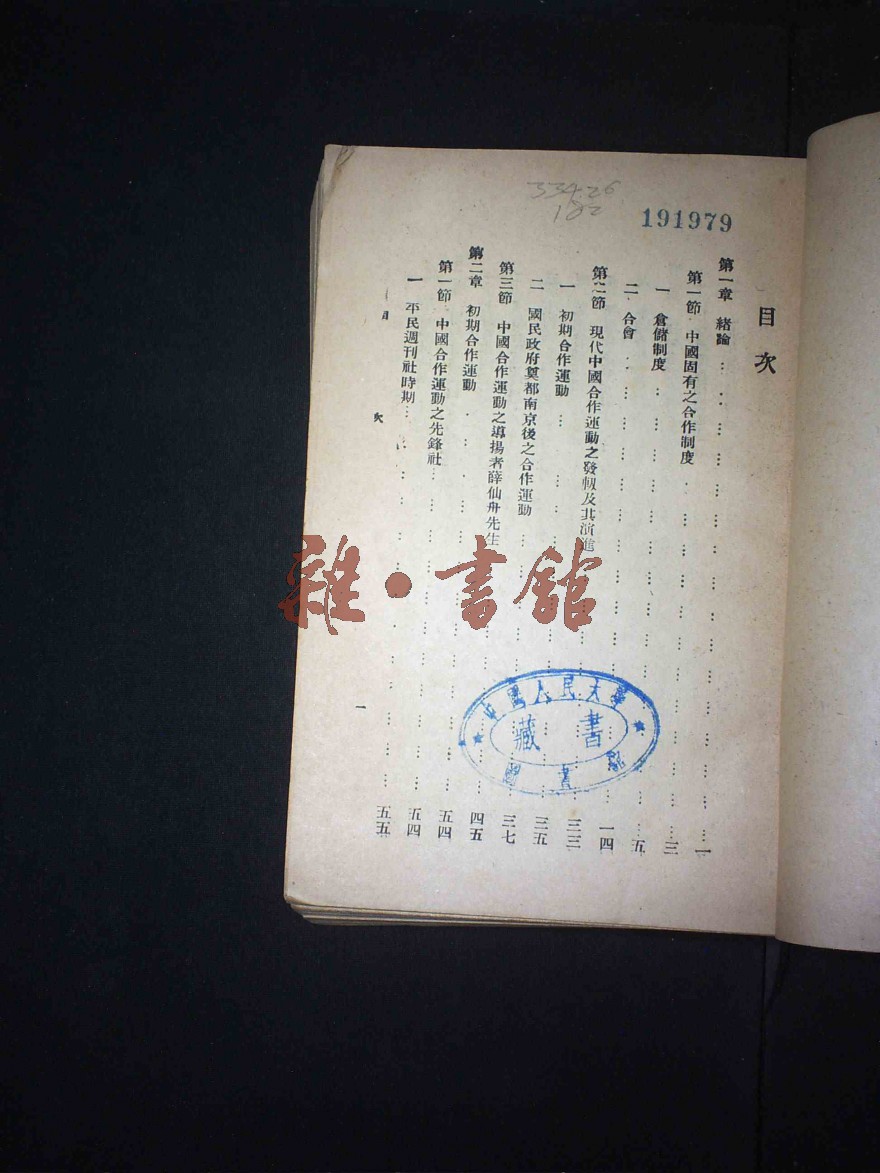 334.26
182
191979
目次
第一章 緒論 …… 一
第一節 中國固有之合作制度 …… 三
一 倉儲制度 …… 五
二 合會 …… 一四
第二節 現代中國合作運動之發軔及其演進 …… 三三
一 初期合作運動 …… 三五
二 國民政府奠都南京後之合作運動 …… 三七
第三節 中國合作運動之導揚者薛仙舟先生 …… 四五
第二章 初期合作運動 …… 五四
第一節 中國合作運動之先鋒社 …… 五四
一 平民週刊社時期 …… 五五
目 次
一
雜·書館
中國人民大學
藏書
圖書館